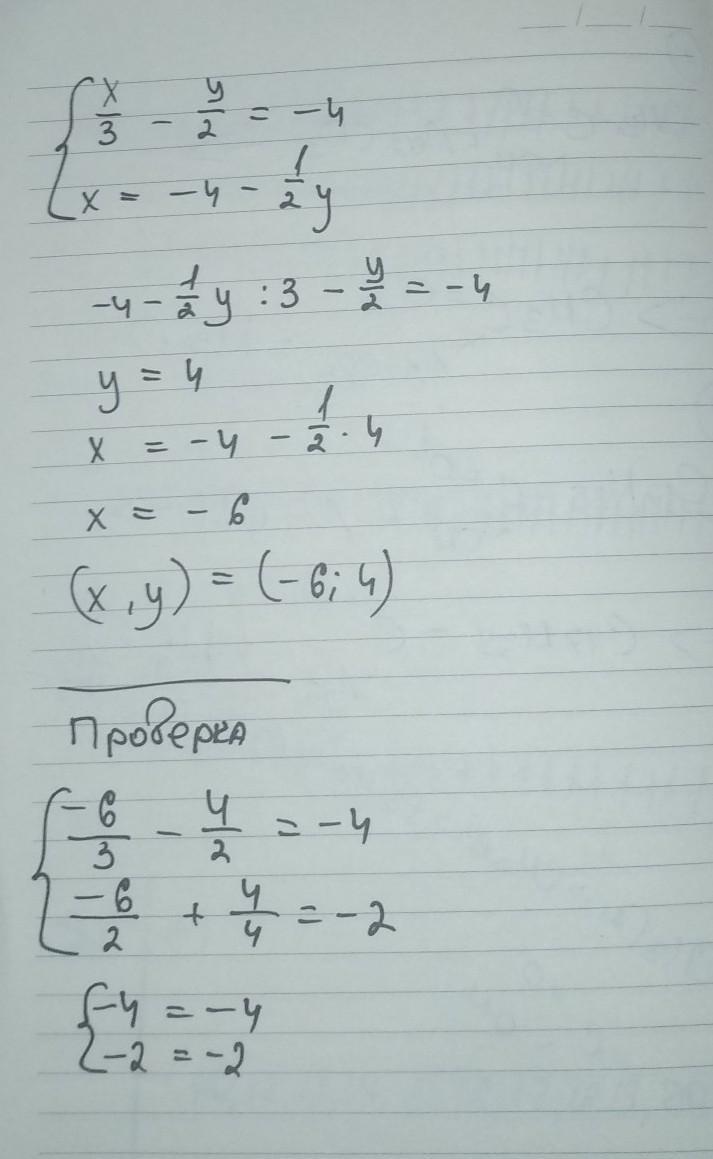 x/3 - y/2 = -4
x = -4 - 1/2 y
-4 - 1/2 y : 3 - y/2 = -4
y = 4
x = -4 - 1/2 · 4
x = -6
(x, y) = (-6; 4)
Проверка
-6/3 - 4/2 = -4
-6/2 + 4/4 = -2
-4 = -4
-2 = -2